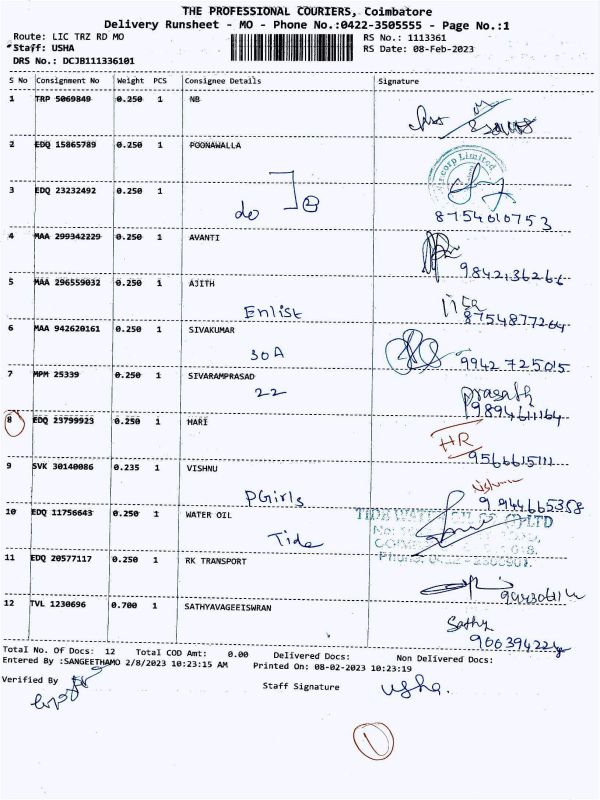 THE PROFESSIONAL COURIERS, Coimbatore
Delivery Runsheet - MO - Phone No.:0422-3505555 - Page No.:1
Route: LIC TRZ RD MO RS No.: 1113361
*Staff: USHA RS Date: 08-Feb-2023
DRS No.: DCJB111336101
S No Consignment No Weight PCS Consignee Details Signature
1 TRP 5069849 0.250 1 NB
2 EDQ 15865789 0.250 1 POONAWALLA
corp Limited
3 EDQ 23232492 0.250 1
do 2
8754010753
4 MAA 299342229 0.250 1 AVANTI
9842136266
5 MAA 296559032 0.250 1 AJITH
Enlist
8754877264
6 MAA 942620161 0.250 1 SIVAKUMAR
30A
9942725015
7 MPM 25339 0.250 1 SIVARAMPRASAD
22 prasath
9894611164
8 EDQ 23799923 0.250 1 HARI
HR
9566615111
9 SVK 30140086 0.235 1 VISHNU
PGirls
9944665358
10 EDQ 11756643 0.250 1 WATER OIL
Tide
11 EDQ 20577117 0.250 1 RK TRANSPORT
12 TVL 1230696 0.700 1 SATHYAVAGEEISWRAN
Sathy
Total No. Of Docs: 12 Total COD Amt: 0.00 Delivered Docs: Non Delivered Docs:
Entered By :SANGEETHAMO 2/8/2023 10:23:15 AM Printed On: 08-02-2023 10:23:19
Verified By Staff Signature usha.
1